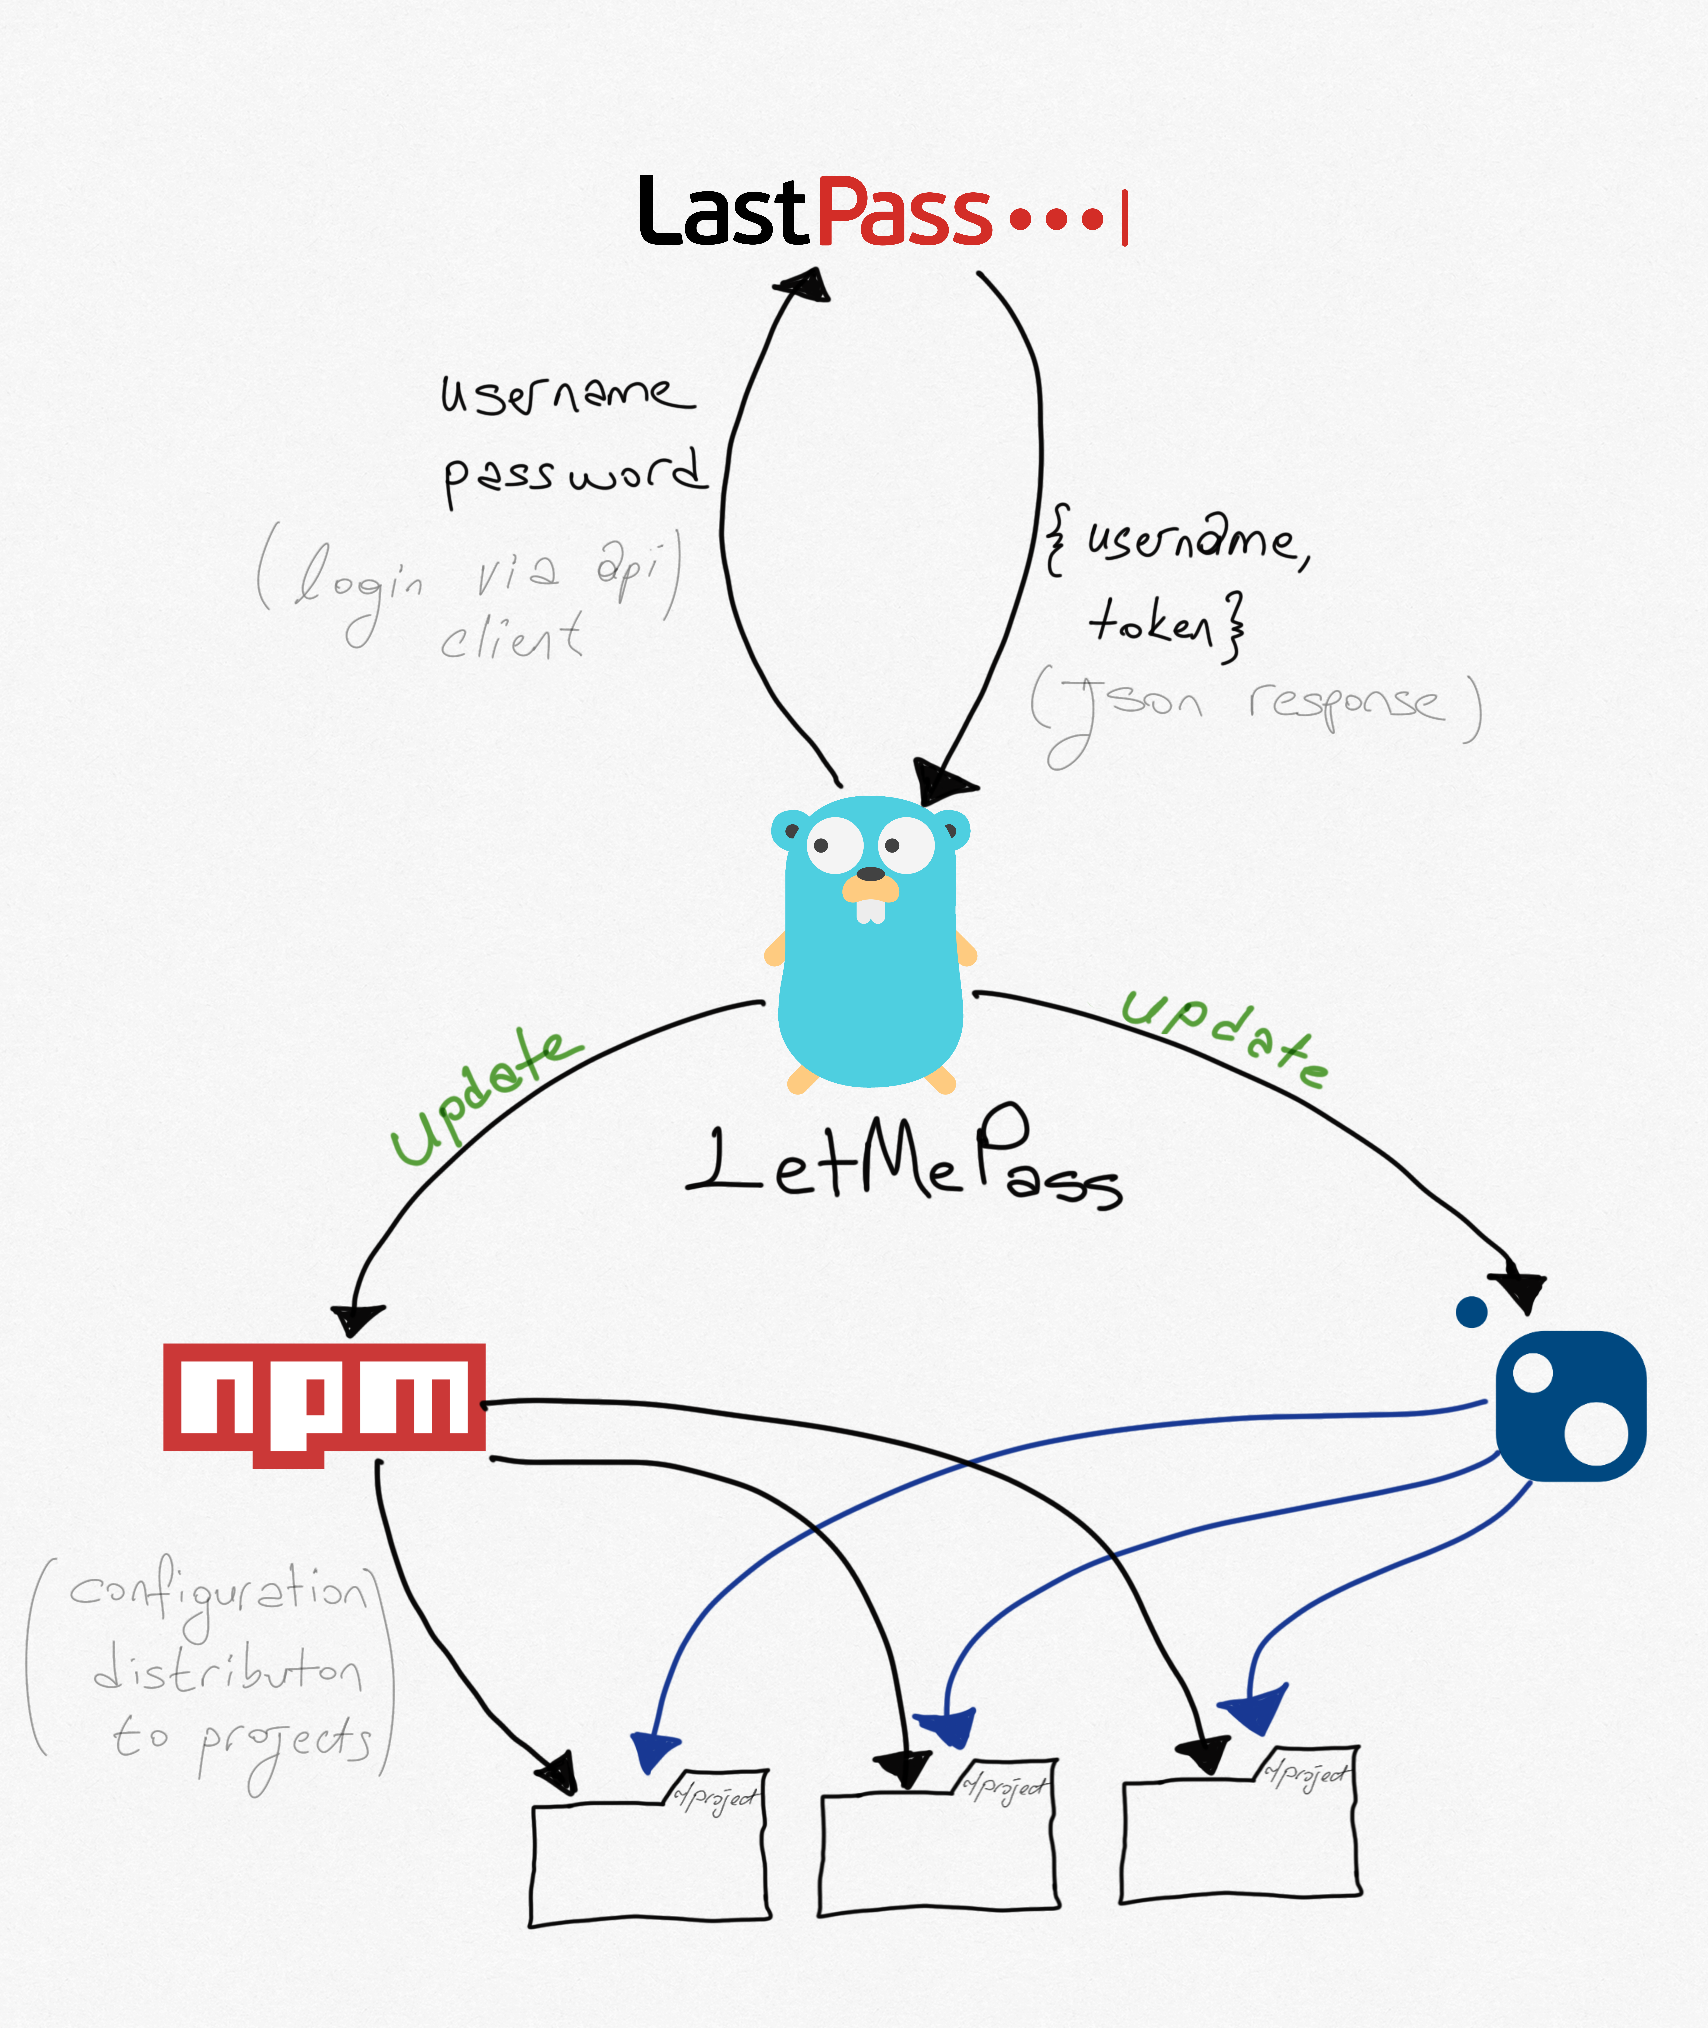 LastPass
username
password
(login via api)
client
{ username,
token}
(Json response)
update
update
LetMePass
npm
(configuration)
distributon
to projects
/project
/project
/project